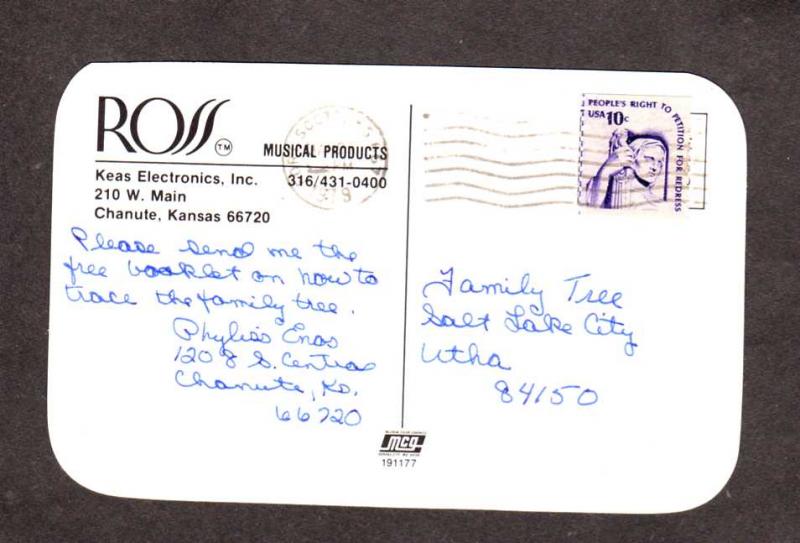 ROSS TM
MUSICAL PRODUCTS
Keas Electronics, Inc. 316/431-0400
210 W. Main
Chanute, Kansas 66720
Please send me the
free booklet on how to
trace the family tree.
Phyliss Enos
1208 S. Central
Chanute, Ks.
66720
PEOPLE'S RIGHT TO PETITION FOR REDRESS
USA 10c
Family Tree
Salt Lake City
Utha
84150
mcg
191177